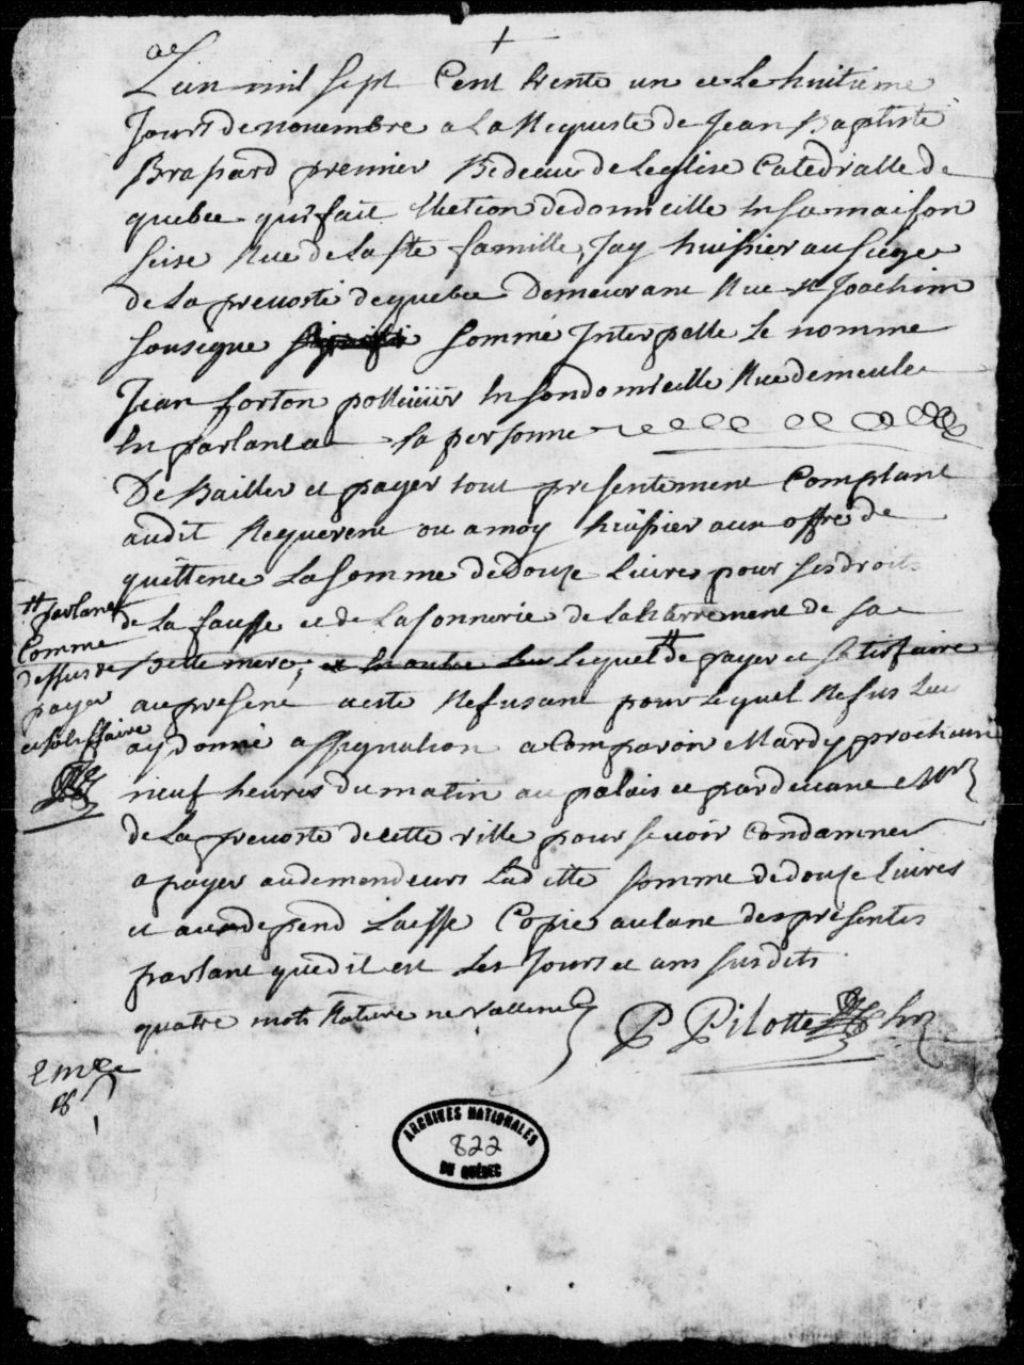 +
Lan mil sept Cent trente un et Le huitieme
Jours de nouembre a La Requeste de Jean Baptiste
Brassard premier Bedeau de Leglise Catedralle de
quebec qui fait Election de domicille En sa maison
seise Rue de La ste famille, Jay huissier au siege
de La preuosté de quebec Demeurant Rue st Joachim
sousigne sommé Interpelle Le nomme
Jean forton En son domicille Rue de meulle
En parlant a sa personne
De Bailler et payer tout presentement Comptant
audit Requerent ou a moy huissier aux offres de
quittence La somme de Douze Liures pour ses droits
de La fausse et de La sonnerie de Lahterrement de sa
Belle mere, et Lequel # de payer et satisfaire
# parlant
Comme
dessus de
payer
et satisffaire
au present acte Refusant pour Lequel Refus Luy
ay donné assignation a Comparoir Mardy prochain
neuf heures du matin au palais et pardeuant Mr
de La preuosté de cette ville pour se voir Condamner
a payer au demendeurs Laditte somme de douze Liures
et aux depend Laisse Copie autant des presentes
parlant que dit est Les Jours et ans susdits
quatre mots Rature ne vallent
P Pilotte hr
ARCHIVES NATIONALES
822
DU QUÉBEC